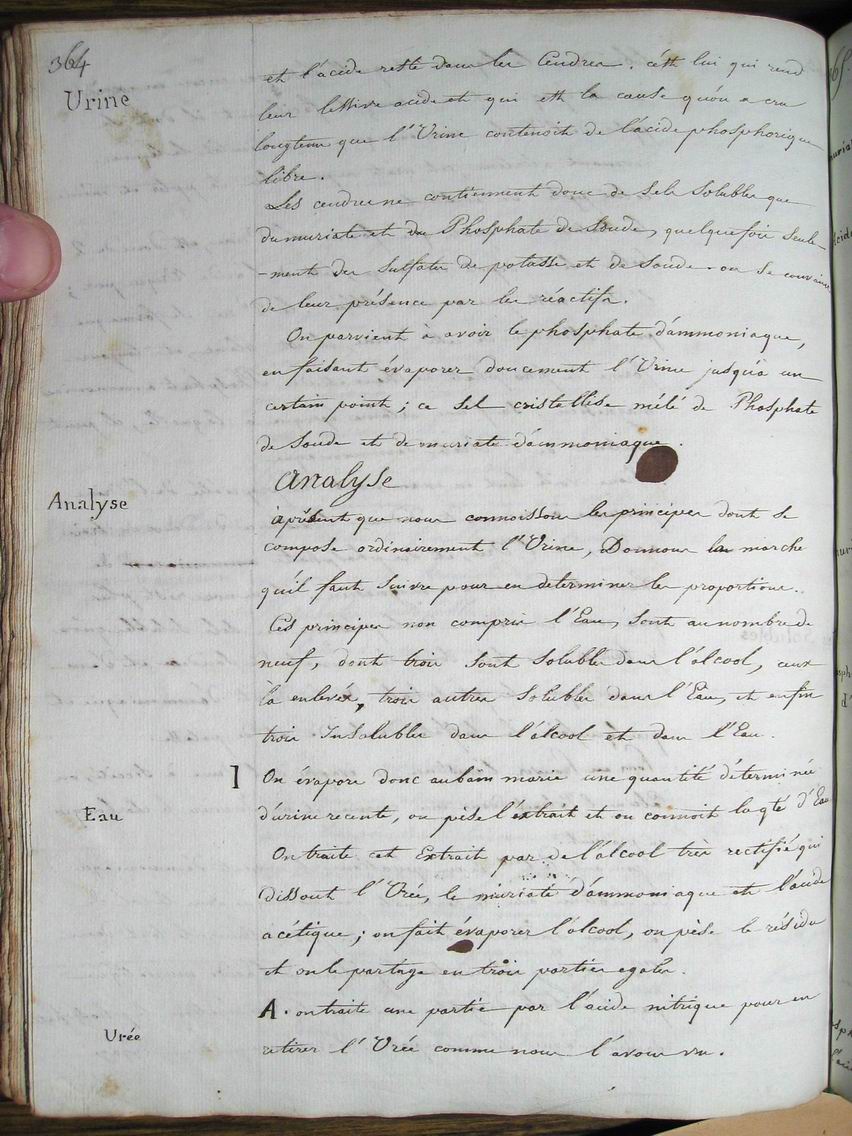 364
Urine
et l'acide reste dans les Cendres. c'est lui qui rend
leur lessive acide et qui est la cause qu'on a cru
longtems que l'Urine contenoit de l'acide phosphorique
libre.
Les cendres ne contiennent donc de sels solubles que
du muriate et du Phosphate de Soude, quelquefois seule-
-ment du Sulfate de potasse et de Soude. on se convainc
de leur présence par les réactifs.
On parvient à avoir le phosphate d'ammoniaque,
en faisant évaporer doucement l'Urine jusqu'à un
certain point ; ce Sel cristallise mélé de Phosphate
de Soude et de muriate d'ammoniaque.
Analyse
Analyse
àprésent que nous connoissons les principes dont se
compose ordinairement l'Urine, Donnons la marche
qu'il faut suivre pour en determiner les proportions.
Ces principes non compris l'Eau, sont au nombre de
neuf, dont trois sont solubles dans l'alcool, ceux
là enlevés, trois autres solubles dans l'Eau, et enfin
trois Insolubles dans l'alcool et dans l'Eau.
1 On évapore donc au bain marie une quantité déterminée
Eau
d'urine recente, on pèse l'extrait et on connoit la qté d'Eau
On traite cet Extrait par de l'alcool très rectifié qui
dissout l'Urée, le muriate d'ammoniaque et l'acide
acétique ; on fait évaporer l'alcool, on pèse le résidu
et on le partage en trois parties egales.
A. on traite une partie par l'acide nitrique pour en
Urée
retirer l'Urée comme nous l'avons vu.